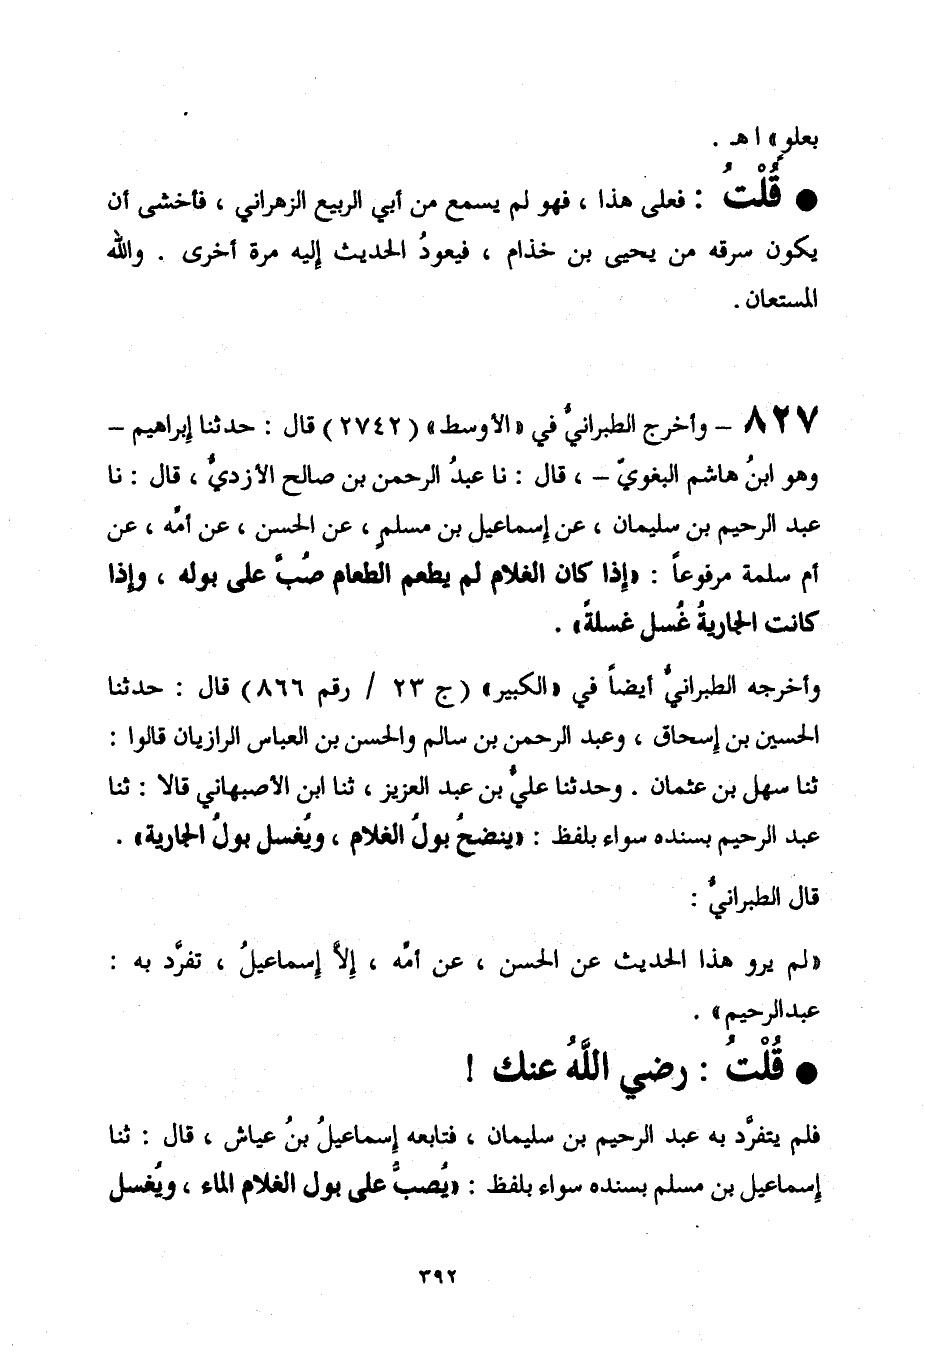 بعلوٍ» اهـ .
● قُلْتُ : فعلى هذا ، فهو لم يسمع من أبي الربيع الزهراني ، فأخشى أن
يكون سرقه من يحيى بن خذام ، فيعودُ الحديث إليه مرة أخرى . والله
المستعان .
٨٢٧ – وأخرج الطبرانيُّ في «الأوسط» (٢٧٤٢) قال : حدثنا إبراهيم –
وهو ابنُ هاشم البغويّ – ، قال : نا عبدُ الرحمن بن صالح الأزديُّ ، قال : نا
عبد الرحيم بن سليمان ، عن إسماعيل بن مسلمٍ ، عن الحسن ، عن أمِّه ، عن
أم سلمة مرفوعاً : «إذا كان الغلام لم يطعم الطعام صُبَّ على بوله ، وإذا
كانت الجاريةُ غُسل غسلةً» .
وأخرجه الطبرانيُّ أيضاً في «الكبير» (ج ٢٣ / رقم ٨٦٦) قال : حدثنا
الحسين بن إسحاق ، وعبد الرحمن بن سالم والحسن بن العباس الرازيان قالوا :
ثنا سهل بن عثمان . وحدثنا عليُّ بن عبد العزيز ، ثنا ابن الأصبهاني قالا : ثنا
عبد الرحيم بسنده سواء بلفظ : «ينضحُ بولُ الغلام ، ويُغسل بولُ الجارية» .
قال الطبرانيُّ :
«لم يرو هذا الحديث عن الحسن ، عن أمِّه ، إلاَّ إسماعيلُ ، تفرَّد به :
عبدالرحيم» .
● قُلْتُ : رضي اللَّهُ عنك !
فلم يتفرَّد به عبد الرحيم بن سليمان ، فتابعه إسماعيلُ بنُ عياش ، قال : ثنا
إسماعيل بن مسلم بسنده سواء بلفظ : «يُصبُّ على بول الغلام الماء ، ويُغسل
٣٩٢